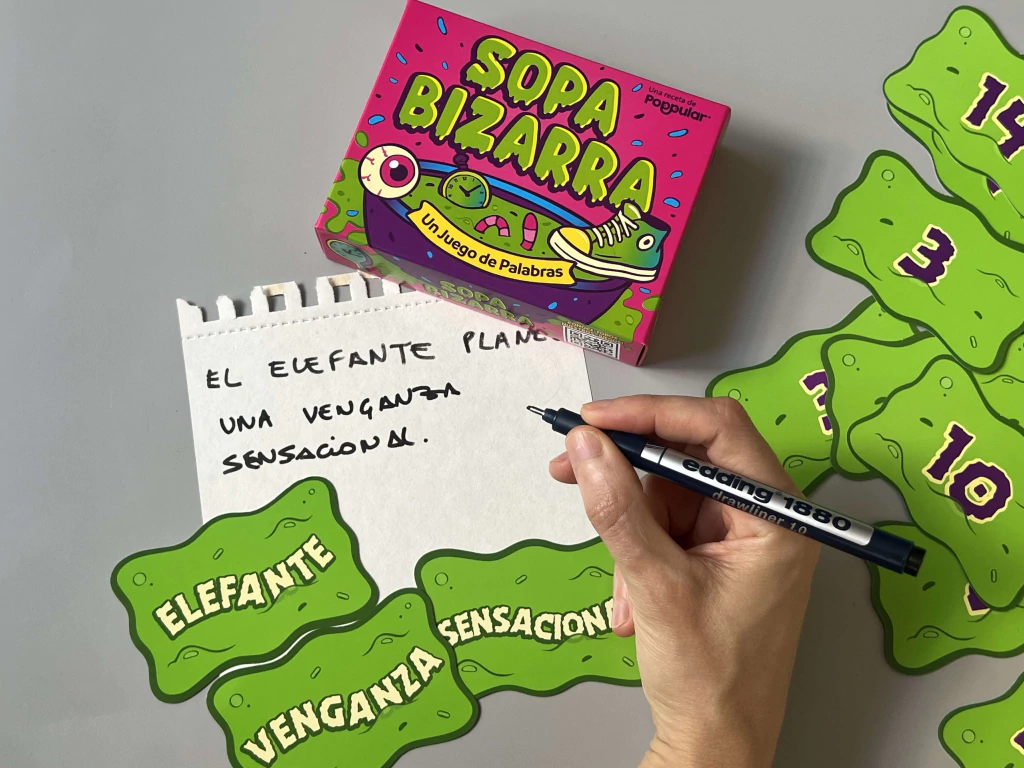 SOPA
BIZARRA
Una receta de
Poppular
Un Juego de Palabras
SOPA
BIZARRA
EL ELEFANTE
UNA VENGANZA
SENSACIONAL.
edding 1880
drawliner 10
ELEFANTE
VENGANZA
14
3
10